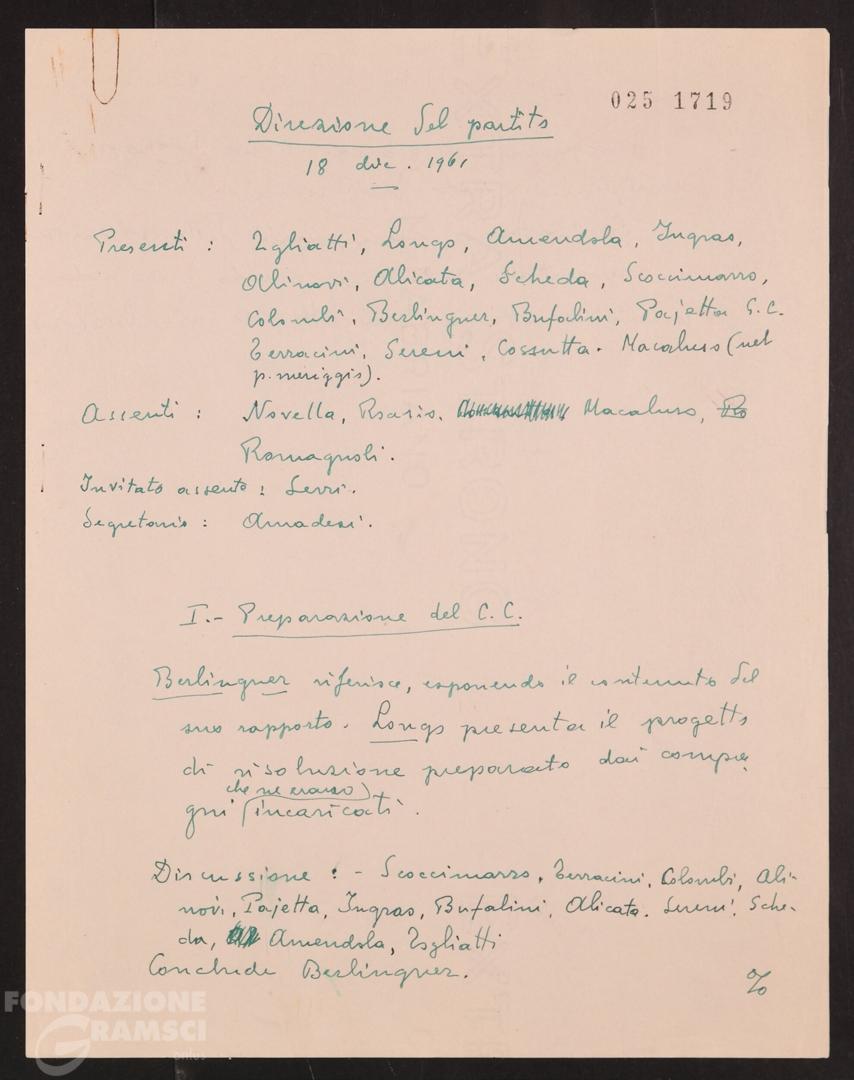 025 1719
Direzione del partito
18 dic. 1961
Presenti : Togliatti, Longo, Amendola, Ingrao,
Alinovi, Alicata, Scheda, Scoccimarro,
Colombi, Berlinguer, Bufalini, Pajetta G.C.
Terracini, Sereni, Cossutta. Macaluso (nel
p. meriggio).
Assenti : Novella, Roasio, Macaluso, Ro
Romagnoli.
Invitato assente : Serri.
Segretario : Amadesi.
I.- Preparazione del C.C.
Berlinguer riferisce, esponendo il contenuto del
suo rapporto. Longo presenta il progetto
di risoluzione preparato dai compa
che ne erano
gni incaricati.
Discussione : - Scoccimarro, Terracini, Colombi, Ali-
novi, Pajetta, Ingrao, Bufalini, Alicata. Sereni, Sche-
da, Amendola, Togliatti
Conclude Berlinguer.
%
FONDAZIONE
GRAMSCI